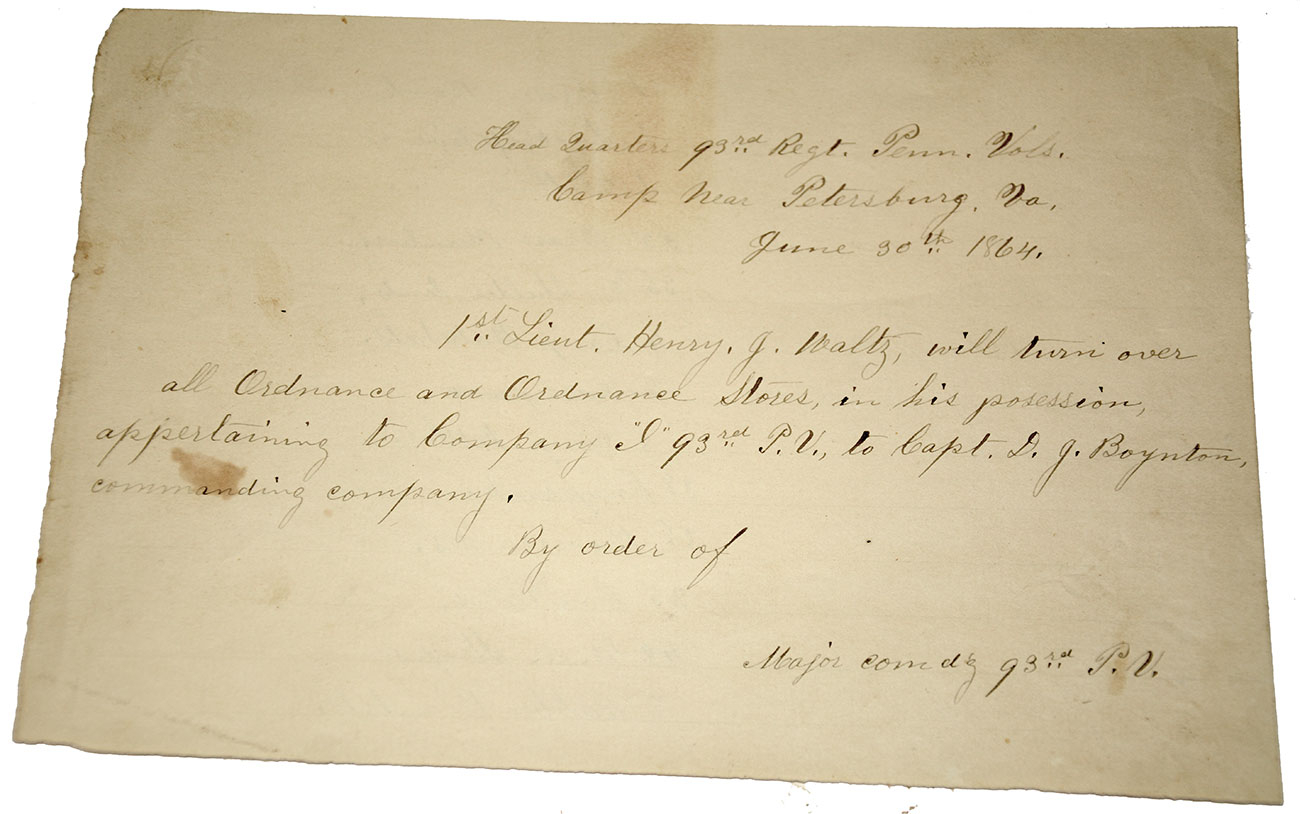 Head Quarters 93rd Regt. Penn. Vols.
Camp Near Petersburg, Va,
June 30th 1864.
1st Lieut. Henry. J. Waltz, will turn over
all Ordnance and Ordnance Stores, in his posession,
appertaining to Company "I" 93rd P.V., to Capt. D. J. Boynton,
commanding company.
By order of
Major comdg 93rd P.V.